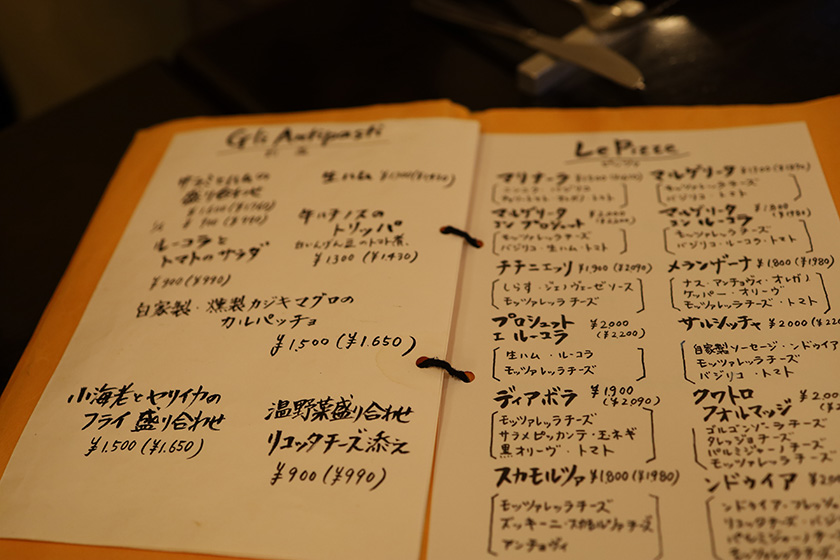 Gli Antipasti
前菜
盛り合わせ
生ハム
牛ハチノスの
トリッパ
白いんげん豆のトマト煮
¥1300 (¥1.430)
ルーコラと
トマトのサラダ
¥900 (¥990)
自家製・燻製カジキマグロの
カルパッチョ
¥1.500 (¥1.650)
小海老とヤリイカの
フライ盛り合わせ
¥1.500 (¥1.650)
温野菜盛り合わせ
リコッタチーズ添え
¥900 (¥990)
Le Pizze
ピッツァ
マリナーラ
マルゲリータ
モッツァレラチーズ
バジリコ・トマト
マルゲリータ
コン プロシュット
モッツァレッラチーズ
バジリコ・生ハム・トマト
マルゲリータ
コン ルーコラ
モッツァレッラチーズ
バジリコ・ルーコラ・トマト
チチニエッリ ¥1,900 (¥2,090)
しらす・ジェノヴェーゼソース
モッツァレッラチーズ
メランザーナ ¥1,800 (¥1980)
ナス・アンチョヴィ・オレガノ
ケッパー・オリーヴ
モッツァレッラチーズ・トマト
プロシュット ¥2,000
エ ルーコラ (¥2200)
生ハム・ルーコラ
モッツァレッラチーズ
サルシッチャ ¥2000
自家製ソーセージ・ンドゥイア
モッツァレッラチーズ
バジリコ・トマト
ディアボラ ¥1,900
(¥2,090)
モッツァレッラチーズ
サラメピッカンテ・玉ネギ
黒オリーヴ・トマト
クワトロ
フォルマッジ
ゴルゴンゾーラチーズ
タレッジョチーズ
パルミジャーノチーズ
モッツァレッラチーズ
スカモルツァ ¥1,800 (¥1980)
モッツァレッラチーズ
ズッキーニ・スカモルツァチーズ
アンチョヴィ
ンドゥイア
ンドゥイア・フレッシュ
リコッタチーズ・バジ
パルミジャーノチー
モッツァレッラチーズ